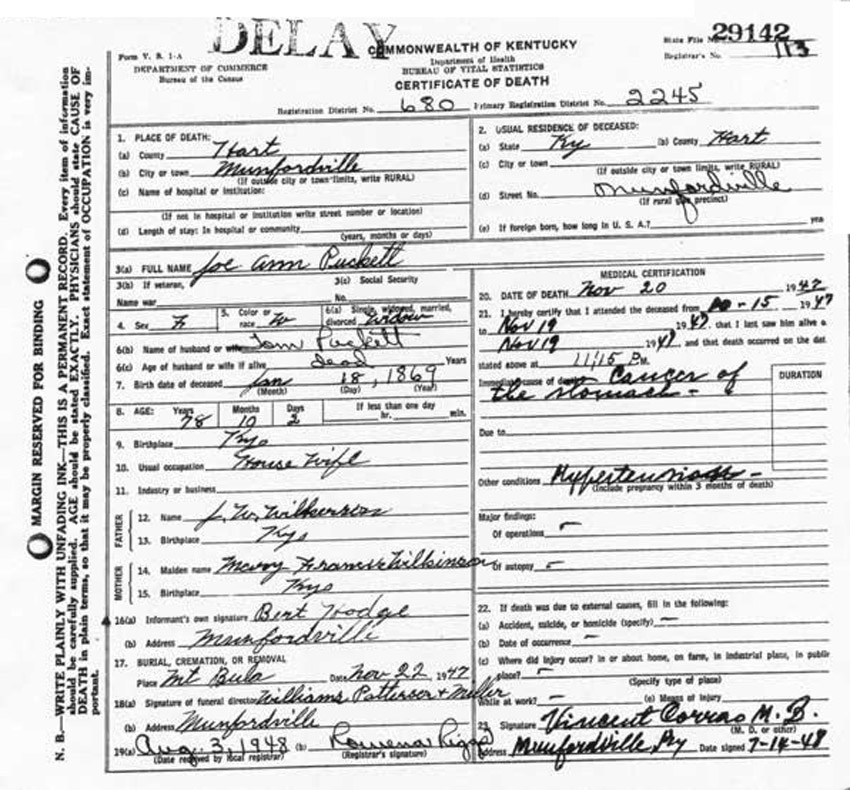 DELAY
29142
State File No.
Registrar's No. 113
Form V. S. 1-A
DEPARTMENT OF COMMERCE
Bureau of the Census
COMMONWEALTH OF KENTUCKY
Department of Health
BUREAU OF VITAL STATISTICS
CERTIFICATE OF DEATH
Registration District No. 680 Primary Registration District No. 2245
MARGIN RESERVED FOR BINDING
N. B.—WRITE PLAINLY WITH UNFADING INK—THIS IS A PERMANENT RECORD. Every item of information
should be carefully supplied. AGE should be stated EXACTLY. PHYSICIANS should state CAUSE OF
DEATH in plain terms, so that it may be properly classified. Exact statement of OCCUPATION is very im-
portant.
1. PLACE OF DEATH:
(a) County Hart
(b) City or town Munfordville
(If outside city or town limits, write RURAL)
(c) Name of hospital or institution:
(If not in hospital or institution write street number or location)
(d) Length of stay: In hospital or community
(years, months or days)
2. USUAL RESIDENCE OF DECEASED:
(a) State Ky (b) County Hart
(c) City or town
(If outside city or town limits, write RURAL)
(d) Street No. Munfordville
(If rural give precinct)
(e) If foreign born, how long in U. S. A.? yea
3(a) FULL NAME Joe Ann Puckett
3(b) If veteran, 3(c) Social Security
Name war No.
4. Sex F 5. Color or race W 6(a) Single, widowed, married, divorced Widow
6(b) Name of husband or wife Tom Puckett
6(c) Age of husband or wife if alive dead Years
7. Birth date of deceased Jan 18, 1869
(Month) (Day) (Year)
8. AGE: Years 78 Months 10 Days 2 If less than one day hr. min.
9. Birthplace Ky
10. Usual occupation House Wife
11. Industry or business
FATHER
12. Name J. W. Wilkerson
13. Birthplace Ky
MOTHER
14. Maiden name Mary Francis Wilkinson
15. Birthplace Ky
16(a) Informant's own signature Bert Hodge
(b) Address Munfordville
17. BURIAL, CREMATION, OR REMOVAL
Place Mt Bula Date Nov 22, 1947
18(a) Signature of funeral director Williams Patterson + Miller
(b) Address Munfordville
19(a) Aug. 3, 1948 (b) Rowena
(Date received by local registrar) (Registrar's signature)
MEDICAL CERTIFICATION
20. DATE OF DEATH Nov 20 1947
21. I hereby certify that I attended the deceased from 10-15, 1947
to Nov 19 1947, that I last saw him alive o
Nov 19 1947, and that death occurred on the dat
stated above at 11:15 P m.
Immediate cause of death Cancer of
the stomach -
DURATION
Due to
Other conditions Hypertension -
(Include pregnancy within 3 months of death)
Major findings:
Of operations -
Of autopsy -
22. If death was due to external causes, fill in the following:
(a) Accident, suicide, or homicide (specify) -
(b) Date of occurrence -
(c) Where did injury occur? in or about home, on farm, in industrial place, in public
place? -
(Specify type of place)
While at work? - (e) Means of injury
23. Signature Vincent Corrao M. D.
(M. D. or other)
Address Munfordville, Ky Date signed 7-14-48